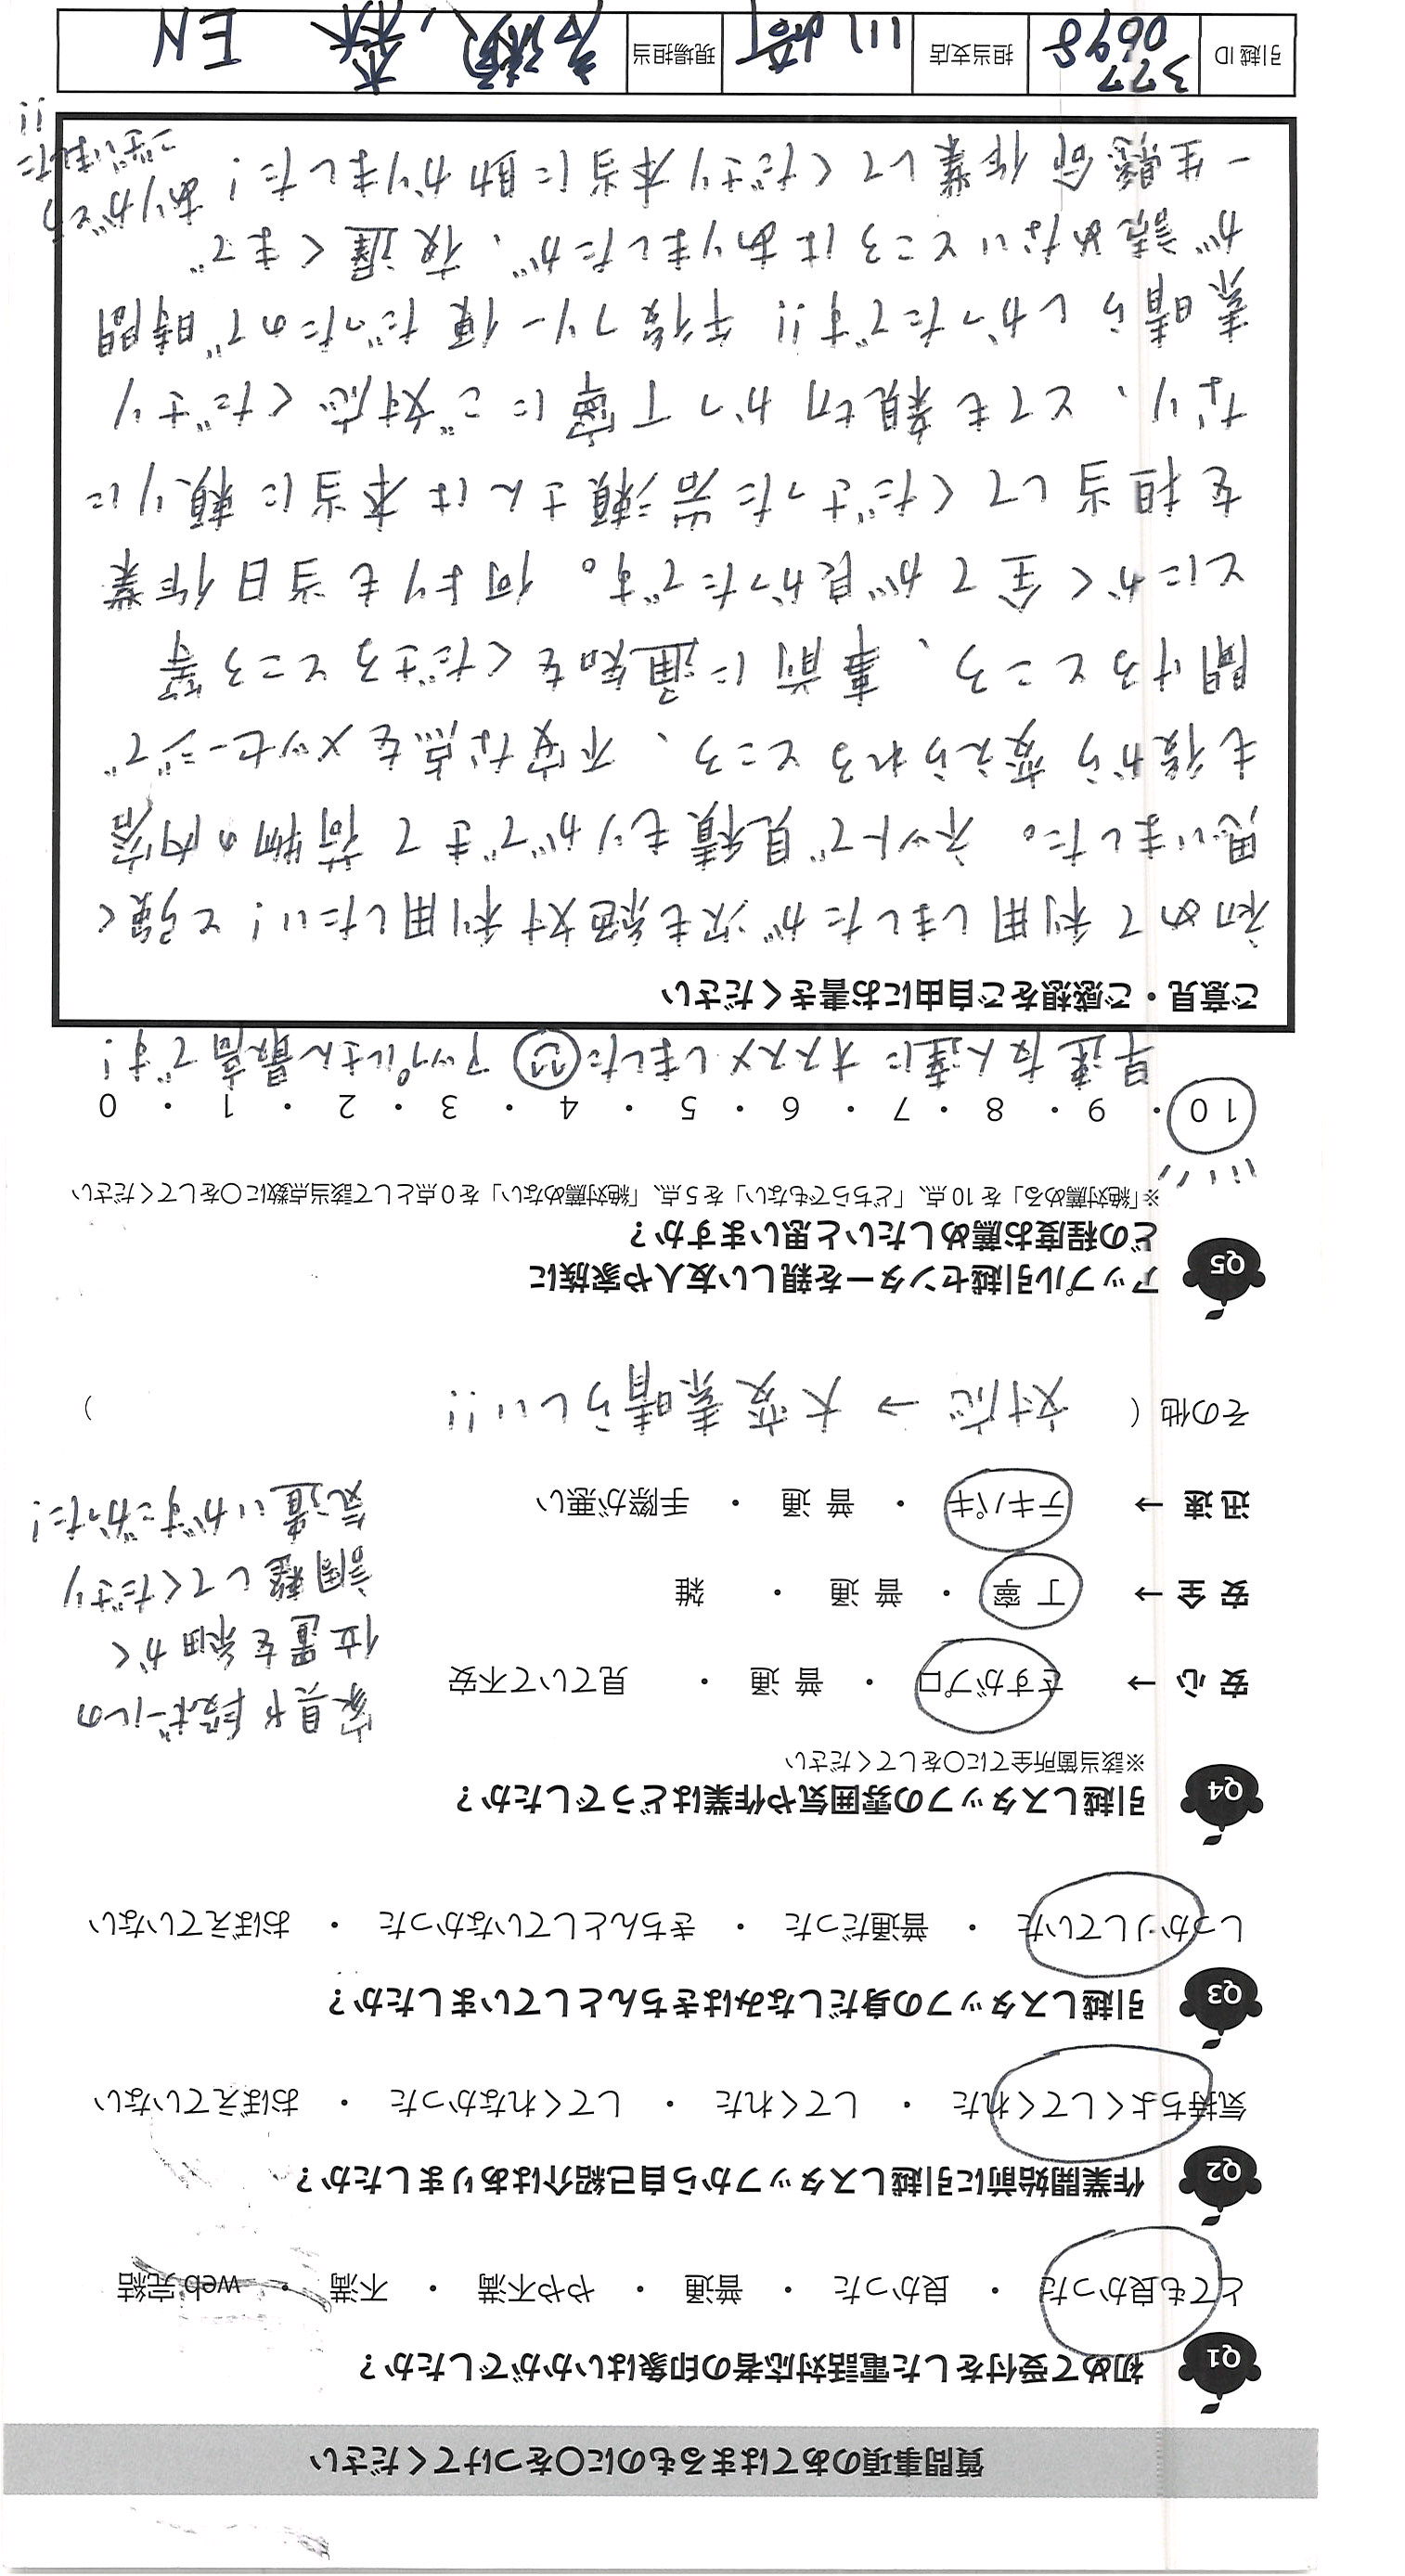 質問事項のあてはまるものに○をつけてください
Q1 初めて受付をした電話対応者の印象はいかがでしたか？
とても良かった ・ 良かった ・ 普通 ・ やや不満 ・ 不満 ・ web完結
Q2 作業開始前に引越しスタッフから自己紹介はありましたか？
気持ちよくしてくれた ・ してくれた ・ してくれなかった ・ おぼえていない
Q3 引越しスタッフの身だしなみはきちんとしていましたか？
しっかりしていた ・ 普通だった ・ きちんとしていなかった ・ おぼえていない
Q4 引越しスタッフの雰囲気や作業はどうでしたか？
※該当箇所全てに○をしてください
安 心 → さすがプロ ・ 普 通 ・ 見ていて不安
安 全 → 丁 寧 ・ 普 通 ・ 雑
迅 速 → テキパキ ・ 普 通 ・ 手際が悪い
家具や段ボールの
位置を細かく
調整してくださり
気遣いがすごかった！
その他（ 対応 → 大変素晴らしい!! ）
Q5 アップル引越センターを親しい友人や家族に
どの程度お薦めしたいと思いますか？
※「絶対薦める」を10点、「どちらでもない」を5点、「絶対薦めない」を0点として該当点数に○をしてください
10 ・ 9 ・ 8 ・ 7 ・ 6 ・ 5 ・ 4 ・ 3 ・ 2 ・ 1 ・ 0
早速友人達にオススメしました アップルさん最高です！
ご意見・ご感想をご自由にお書きください
初めて利用しましたが次も絶対利用したい！と強く
思いました。ネットで見積もりができて荷物の内容
も後から変えられるところ、不安な点をメッセージで
聞けるところ、事前に通知をくださるところ等
とにかく全てが良かったです。何よりも当日作業
を担当してくださった岩瀬さんは本当に頼りに
なり、とても親切かつ丁寧にご対応くださり
素晴らしかったです!! 午後フリー便だったので時間
が読めないところはありましたが、夜遅くまで
一生懸命作業してくださり本当に助かりました！
ありがとう
ございました
!!
引越ID 377 0698 担当支店 川崎 現場担当 岩瀬、森 EN